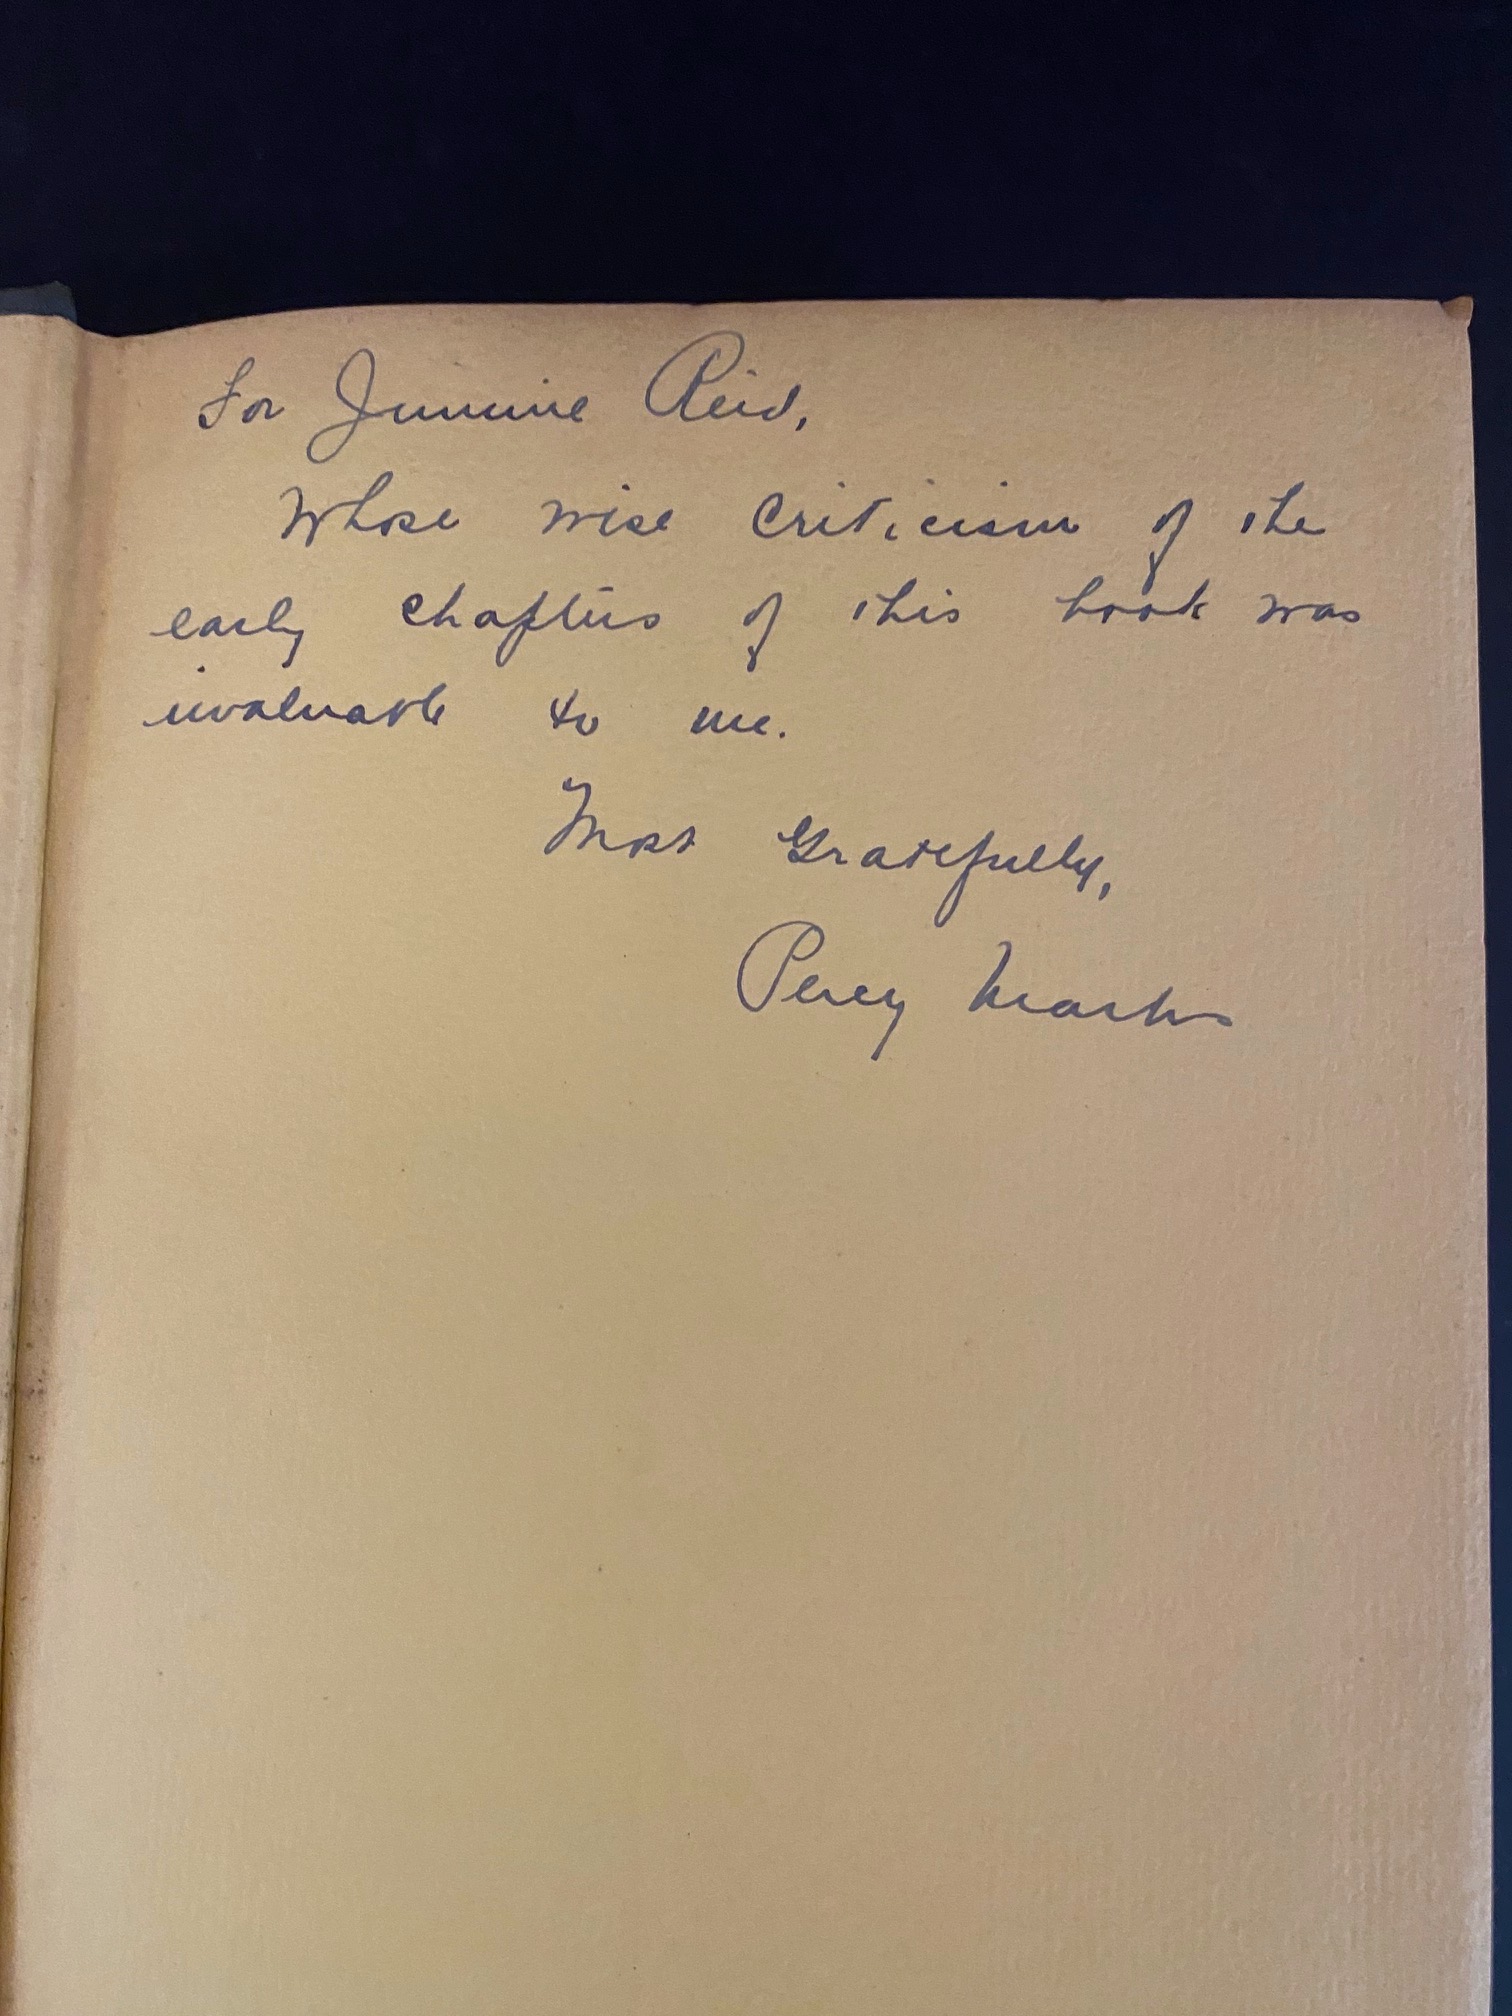 For Jimmie Reid,
Whose wise criticism of the
early chapters of this book was
invaluable to me.
Most Gratefully,
Percy Marks